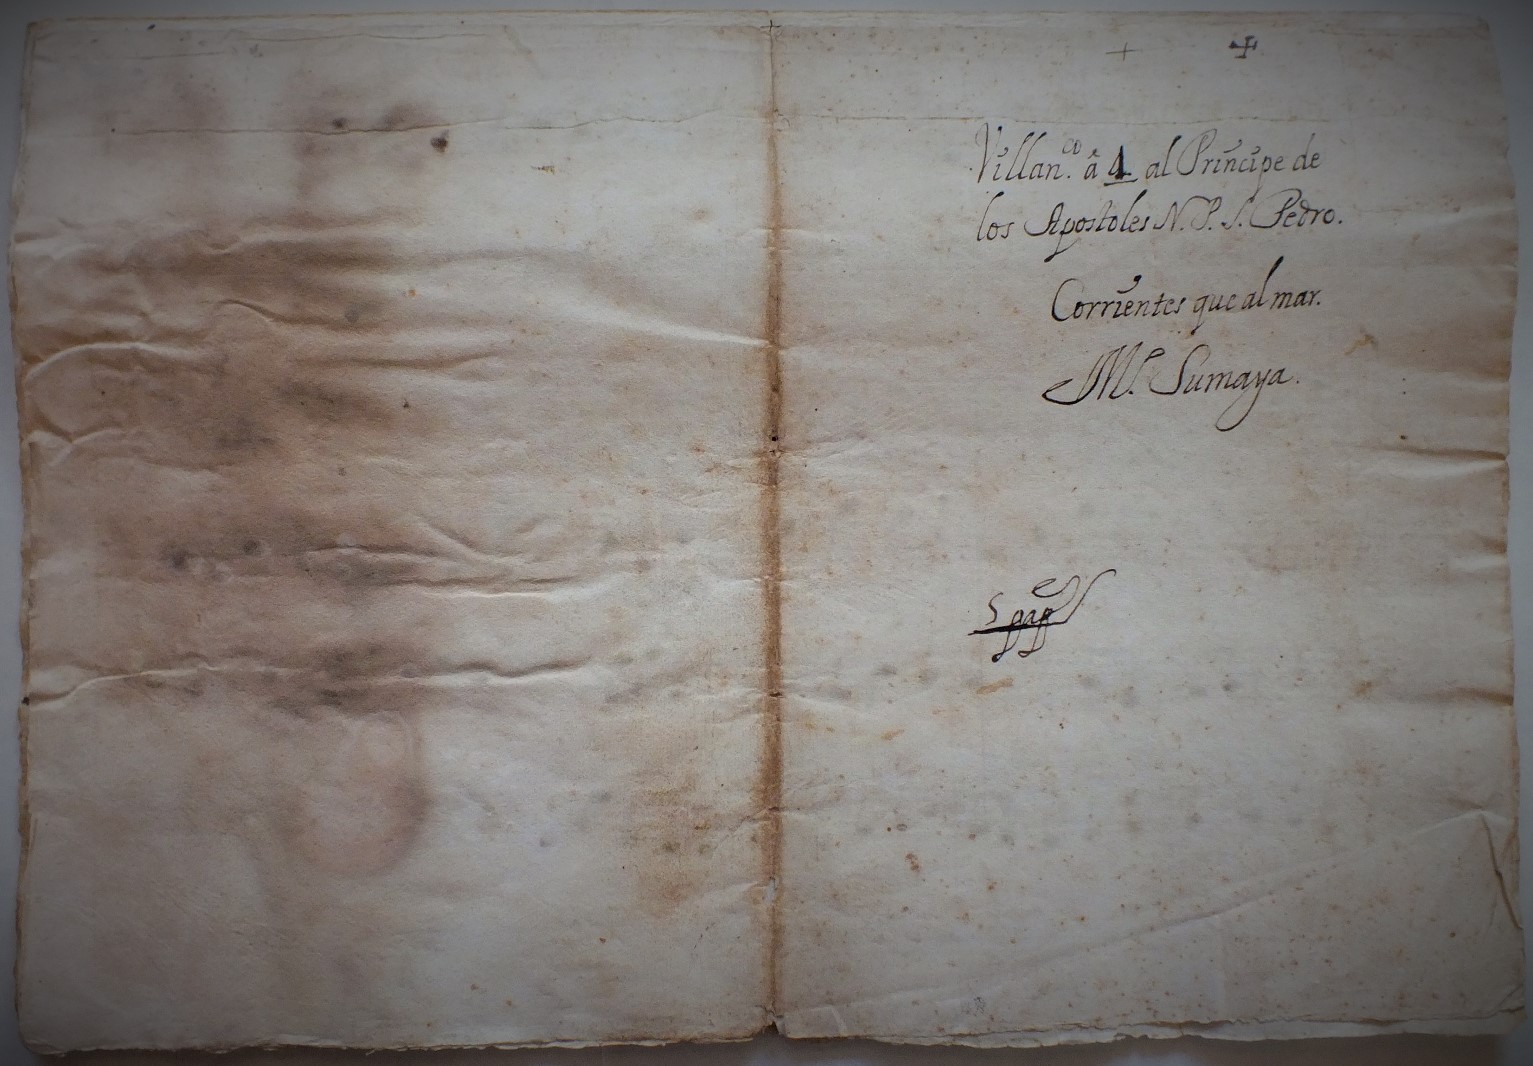 Villan.co â 4 al Principe de
los Apostoles N. P. S. Pedro.
Corrientes que al mar.
M.º Sumaya.
5 pap.s